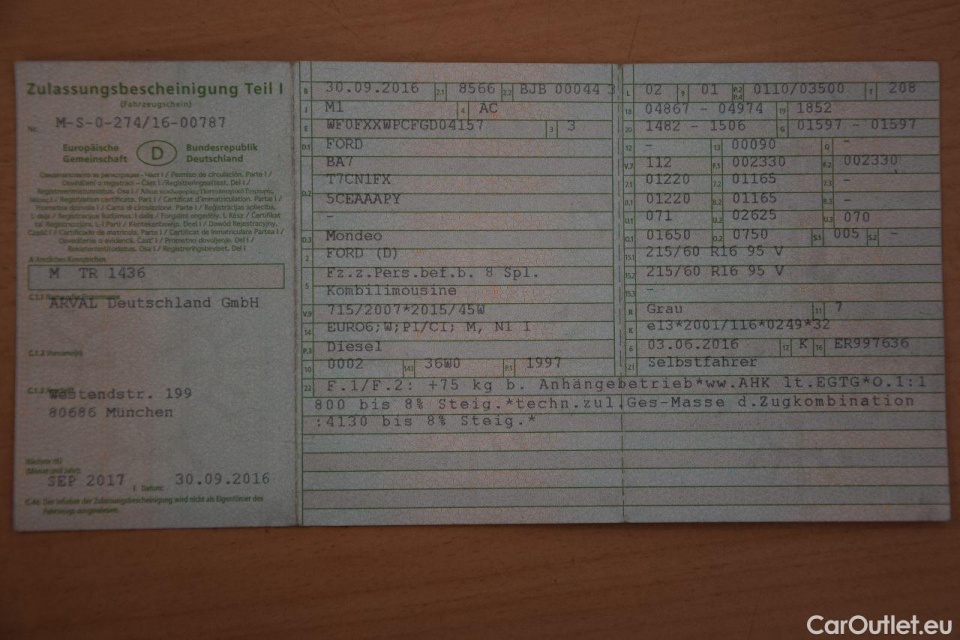 Zulassungsbescheinigung Teil I
(Fahrzeugschein)
Nr. M-S-0-274/16-00787
Europäische Gemeinschaft D Bundesrepublik Deutschland
M TR 1436
ARVAL Deutschland GmbH
Westendstr. 199
80686 München
SEP 2017 Datum: 30.09.2016
C.4c Der Inhaber der Zulassungsbescheinigung wird nicht als Eigentümer des
Fahrzeugs ausgewiesen.
B 30.09.2016 2.1 8566 2.2 BJB 00044 3
J M1 4 AC
E WF0FXXWPCFGD04157 3 3
D.1 FORD
BA7
D.2 T7CN1FX
5CEAAAPY
-
D.3 Mondeo
2 FORD (D)
5 Fz.z.Pers.bef.b. 8 Spl.
Kombilimousine
V.9 715/2007*2015/45W
14 EURO6;W;PI/CI; M, N1 I
P.3 Diesel
10 0002 14.1 36W0 P.1 1997
L 02 9 01 P.2 P.4 0110/03500 T 208
18 04867 - 04974 19 1852
20 1482 - 1506 G 01597 - 01597
12 - 13 00090 Q -
V.7 112 F.1 002330 F.2 002330
7.1 01220 7.2 01165 7.3 -
8.1 01220 8.2 01165 8.3 -
U.1 071 U.2 02625 U.3 070
O.1 01650 O.2 0750 S.1 005 S.2 -
15.1 215/60 R16 95 V
15.2 215/60 R16 95 V
15.3 -
R Grau 11 7
K e13*2001/116*0249*32
6 03.06.2016 17 K 16 ER997636
21 Selbstfahrer
22 F.1/F.2: +75 kg b. Anhängebetrieb*ww.AHK lt.EGTG*O.1:1
800 bis 8% Steig.*techn.zul.Ges-Masse d.Zugkombination
:4130 bis 8% Steig.*
CarOutlet.eu